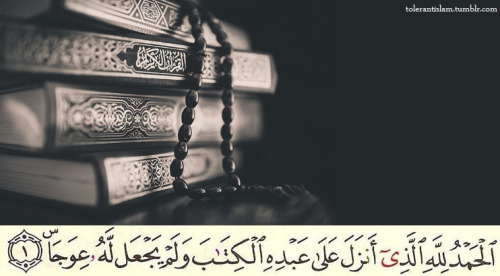 tolerantislam.tumblr.com
القرآن الكريم
الْحَمْدُ لِلَّهِ الَّذِىٓ أَنزَلَ عَلَىٰ عَبْدِهِ الْكِتَـٰبَ وَلَمْ يَجْعَل لَّهُۥ عِوَجَاۜ ١